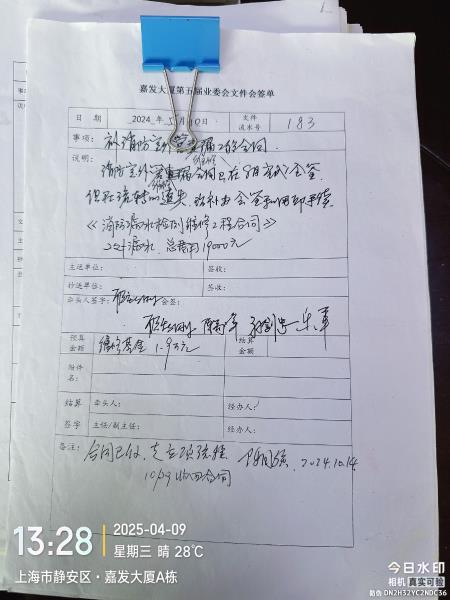 嘉发大厦第五届业委会文件会签单
日期 2024年 月10日 文件流水号 183
事项: 补消防室外 工程合同
说明: 消防室外 合同已在8月完成会签
但在流转时遗失, 现补办会签和用印手续
《消防漏水检测维修工程合同》
2处漏水, 总费用19000元
主送单位: 签收:
抄送单位: 签收:
牵头人签字: 会签:
预算金额 维修基金 1.9万元 结算金额
附件名:
结算 牵头人: 经办人:
签字 主任/副主任: 经办人:
备注: 合同已付, 走 流程 2024.10.14
10/19 收回合同
13:28 2025-04-09
星期三 晴 28℃
上海市静安区·嘉发大厦A栋
今日水印
相机 真实可验
防伪 DN2H32YC2NDC36